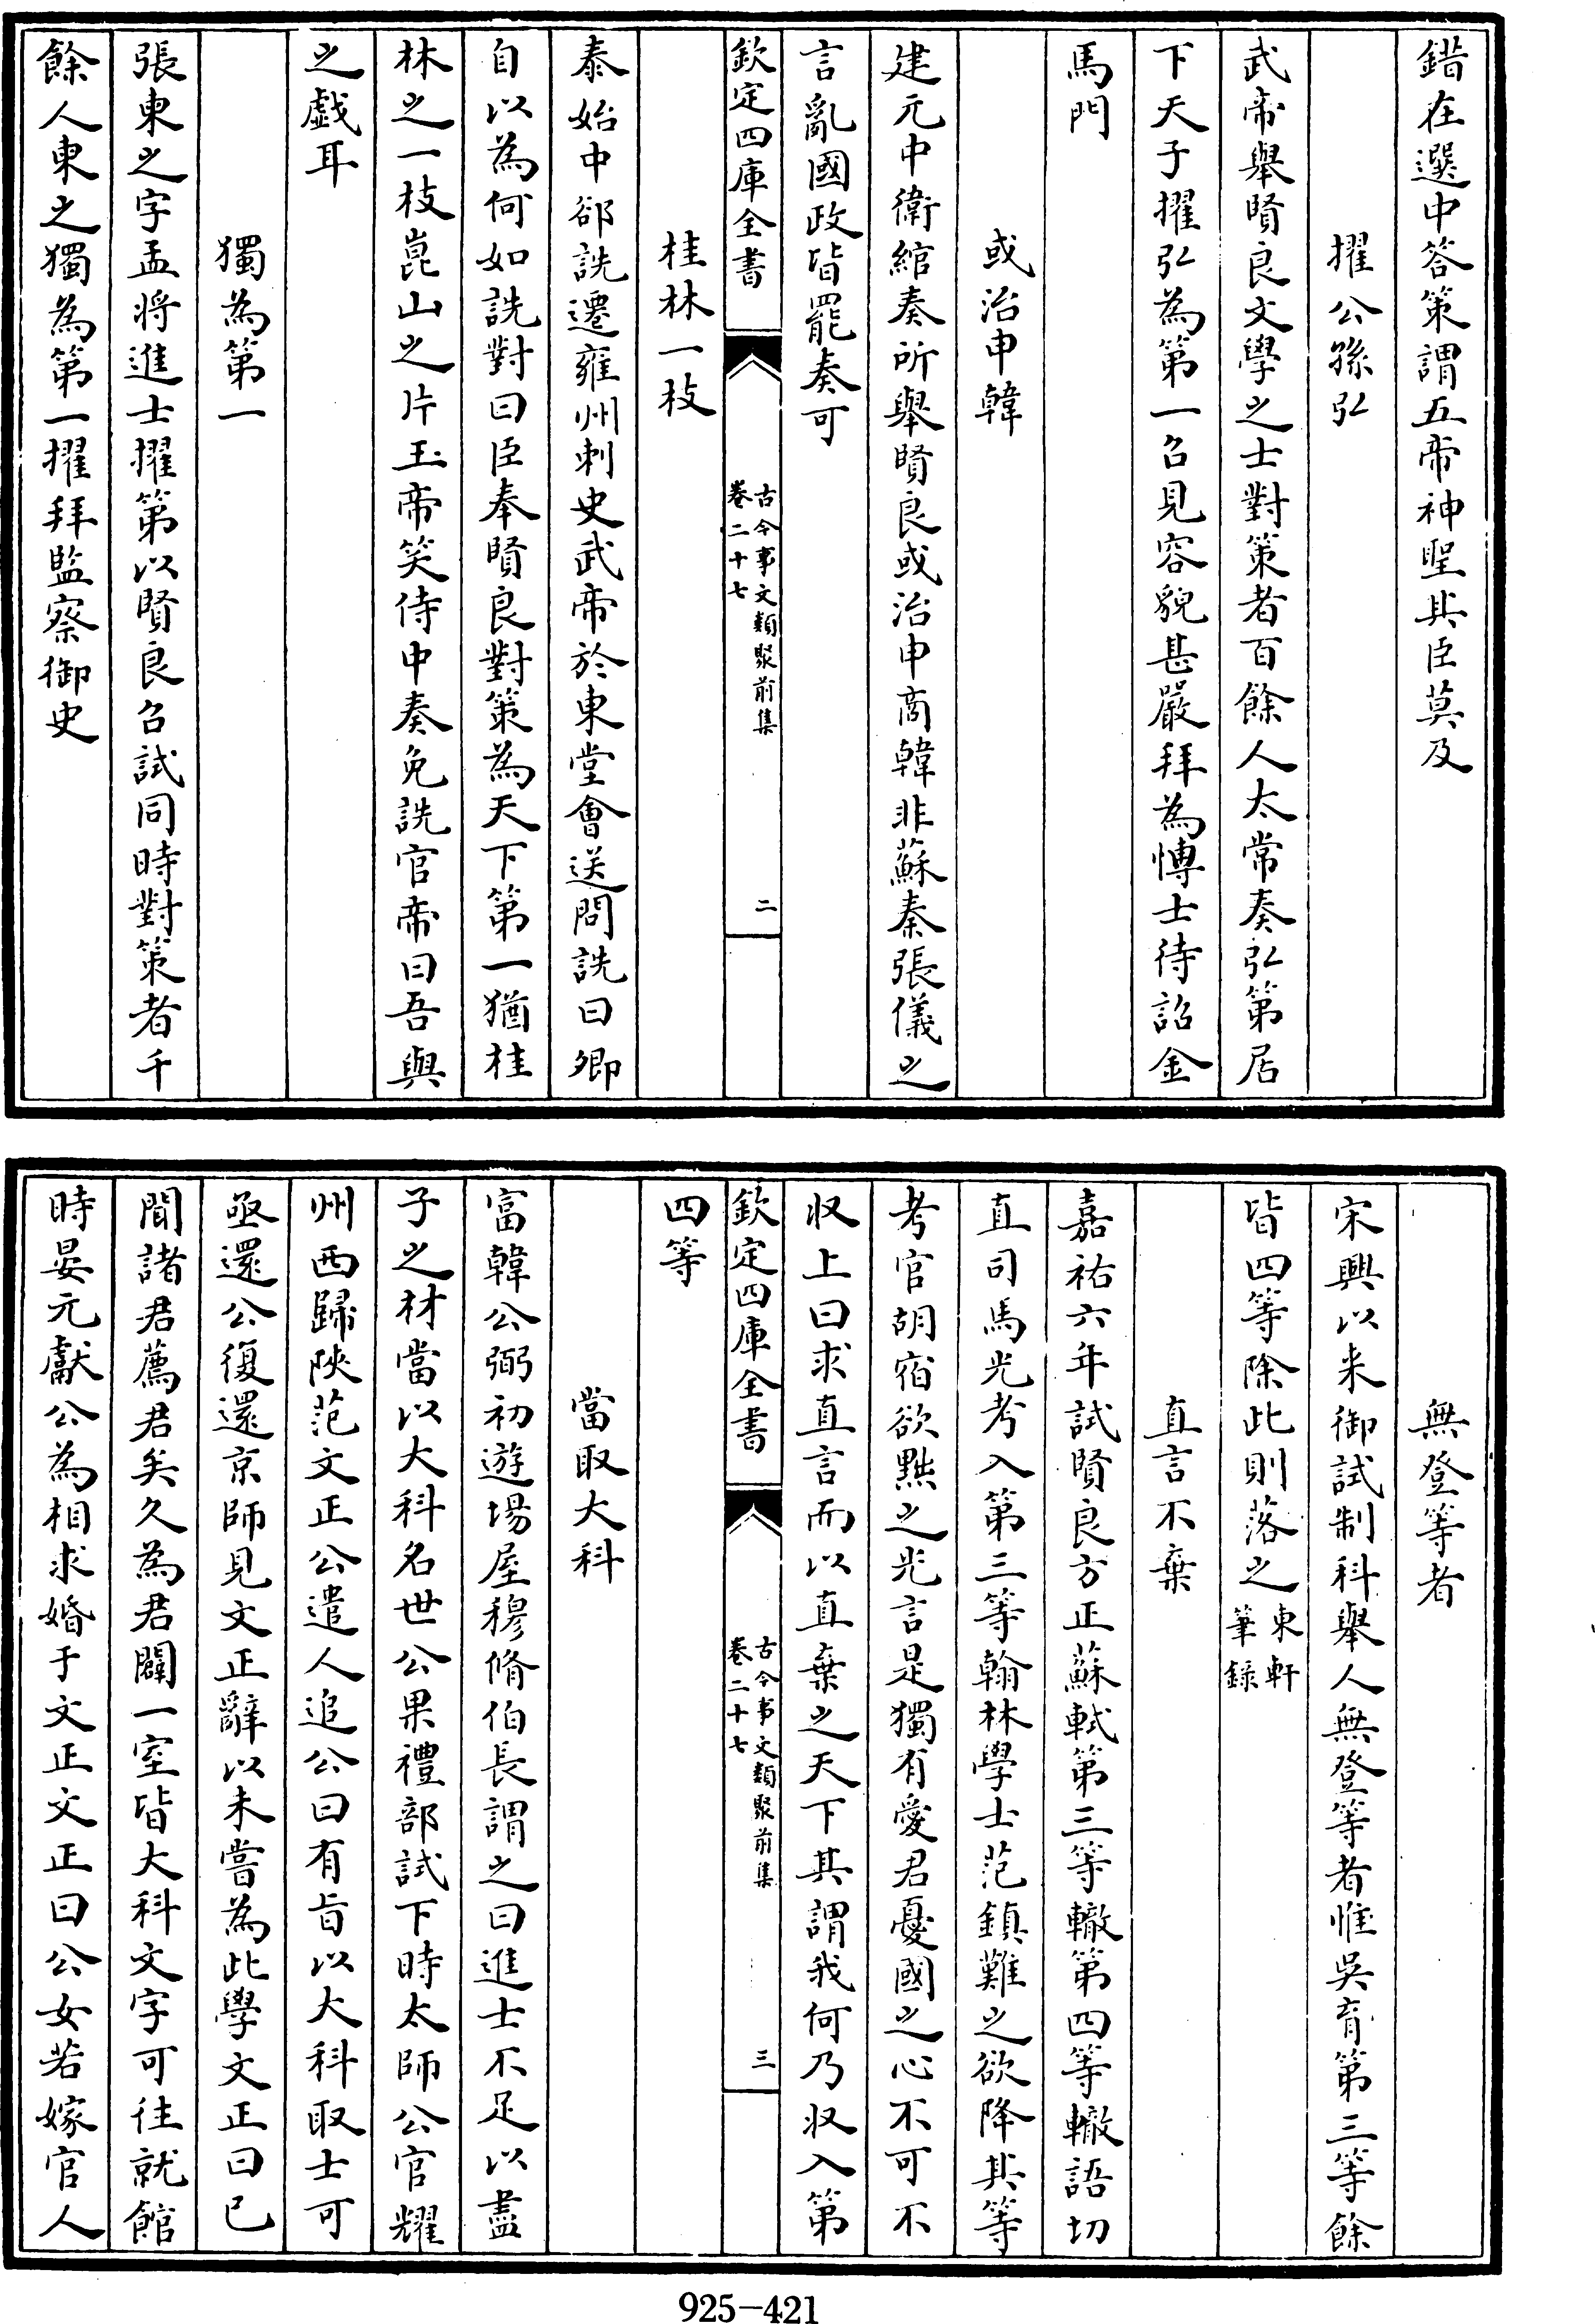 錯在選中答策謂五帝神聖其臣莫及
擢公孫弘
武帝舉賢良文學之士對策者百餘人太常奏弘第居
下天子擢弘為第一召見容貌甚嚴拜為博士待詔金
馬門
或治申韓
建元中衛綰奏所舉賢良或治申商韓非蘇秦張儀之
言亂國政皆罷奏可
欽定四庫全書
古今事文類聚前集
卷二十七
二
桂林一枝
泰始中郤詵遷雍州刺史武帝於東堂會送問詵曰卿
自以為何如詵對曰臣奉賢良對策為天下第一猶桂
林之一枝崑山之片玉帝笑侍中奏免詵官帝曰吾與
之戱耳
獨為第一
張柬之字孟將進士擢第以賢良召試同時對策者千
餘人柬之獨為第一擢拜監察御史
無登等者
宋興以来御試制科舉人無登等者惟吳育第三等餘
皆四等除此則落之東軒
筆錄
直言不棄
嘉祐六年試賢良方正蘇軾第三等轍第四等轍語切
直司馬光考入第三等翰林學士范鎮難之欲降其等
考官胡宿欲黜之光言是獨有愛君憂國之心不可不
収上曰求直言而以直棄之天下其謂我何乃収入第
欽定四庫全書
古今事文類聚前集
卷二十七
三
四等
當取大科
富韓公弼初遊場屋穆脩伯長謂之曰進士不足以盡
子之材當以大科名世公果禮部試下時太師公官耀
州西歸陜范文正公遣人追公曰有旨以大科取士可
亟還公復還京師見文正辭以未嘗為此學文正曰已
聞諸君薦君矣久為君闢一室皆大科文字可往就館
時晏元獻公為相求婚于文正文正曰公女若嫁官人
925-421